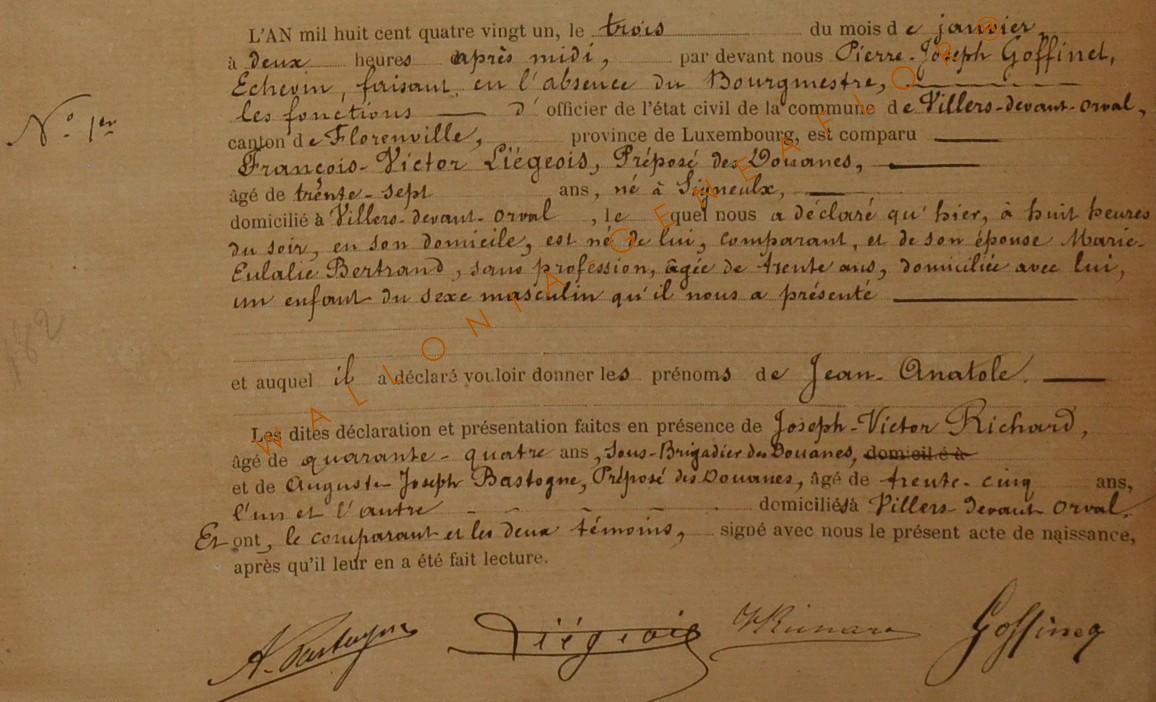 L'AN mil huit cent quatre vingt un, le trois du mois de janvier,
à deux heures après midi, par devant nous Pierre-Joseph Goffinet,
Echevin, faisant, en l'absence du Bourgmestre,
les fonctions d'officier de l'état civil de la commune de Villers-devant-Orval,
N° 1er
canton de Florenville, province de Luxembourg, est comparu
François-Victor Liégeois, Préposé des Douanes,
âgé de trente-sept ans, né à Signeulx,
domicilié à Villers-devant-Orval, lequel nous a déclaré qu'hier, à huit heures
du soir, en son domicile, est né de lui, comparant, et de son épouse Marie-
Eulalie Bertrand, sans profession, âgée de trente ans, domiciliée avec lui,
un enfant du sexe masculin qu'il nous a présenté
182
et auquel il a déclaré vouloir donner les prénoms de Jean-Anatole.
Les dites déclaration et présentation faites en présence de Joseph-Victor Richard,
âgé de quarante-quatre ans, Sous-Brigadier des Douanes, domicilié à
et de Auguste Joseph Bastogne, Préposé des Douanes, âgé de trente-cinq ans,
l'un et l'autre domiciliés à Villers devant Orval.
Et ont, le comparant et les deux témoins, signé avec nous le présent acte de naissance,
après qu'il leur en a été fait lecture.
A. Bastogne Liégeois Goffinet